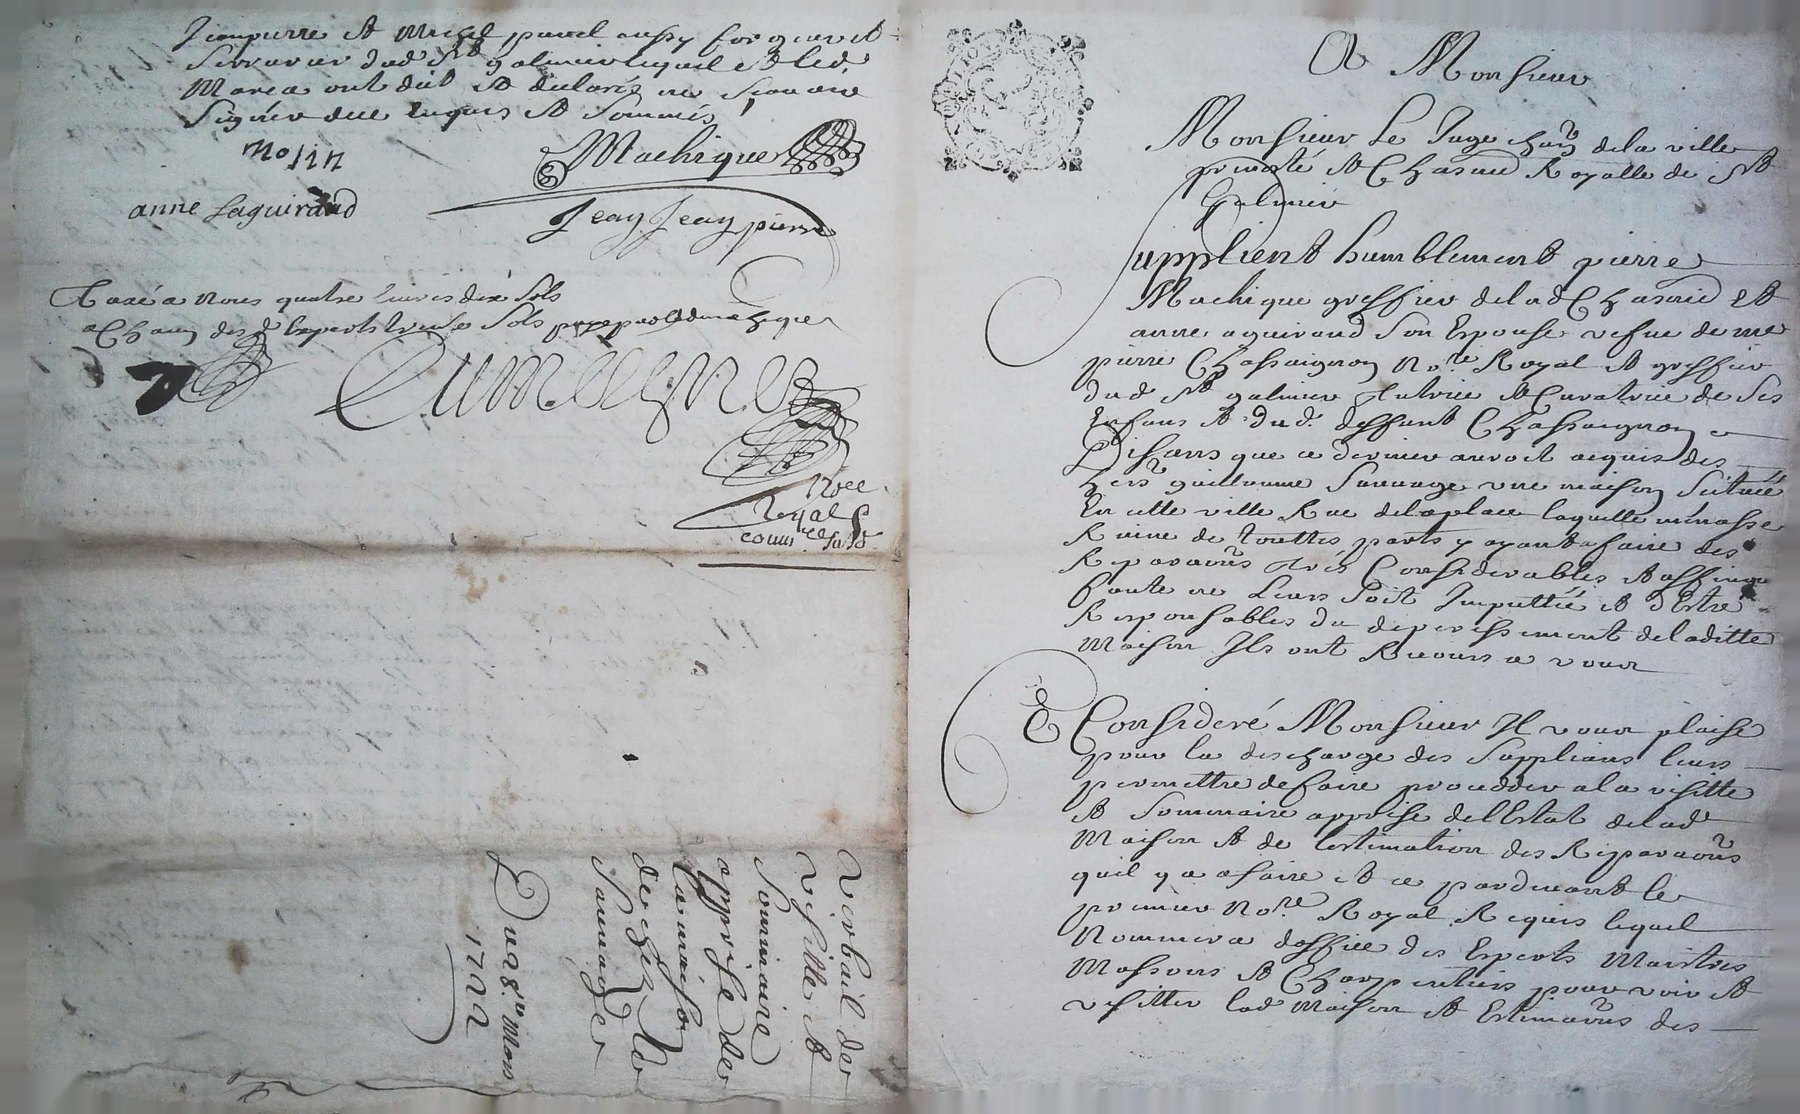 Jeanpierre et Michel pauel aussy forgeur et
Serrurier dud St galmier lequel et led.
Marca ont dit et declaré ne scavoir
Signer de ce enquis et Sommés
Molin
Machique
anne Laguiraud
Jean Jean pierre
Taxé a Nous quatre livres dix Sols
a Chacun des d. Experts trente Sols payé par led machique
Noere
Royal
comm.re Susd.
Verbail de
Visitte et
Sommaire
apprise de
la maison
de hers
Sauvage
Du 28.e Mars
1722
A Monsieur
Monsieur Le Juge de la ville
prevosté et Chastnie Royalle de St
Galmier
Supplient humblement pierre
Machique greffier de lad Chastnie et
anne aguiraud Son Espouse vefue de me
pierre Chassaignon No.re Royal et greffier
dud St galmier Tutrice et Curatrice de Ses
Enfans et dud. deffunt Chassaignon
Disans que ce dernier auroit acquis des
hers guillaume Sauvage une maison Scituée
En cette ville Rue de la place laquelle menasse
Ruine de touttes parts y ayant a faire des
Reparaons très Considerables et affinque
faute ne Leurs Soit Imputtée et d'Estre
Responsables du deperissement de laditte
Maison Ils ont Recours a vous
Ce Consideré Monsieur Il vous plaise
pour la descharge des Supplians leurs
permettre de faire proceder a la visitte
et Sommaire apprise de l'Estat de lad
Maison et de lestimation des Reparaons
quil y a a faire et ce pardevant le
premier No.re Royal Requis lequel
Nommera doffice des Experts Maistres
Massons et Charpentiers pour voir et
visitter lad Maison et Estimaons des